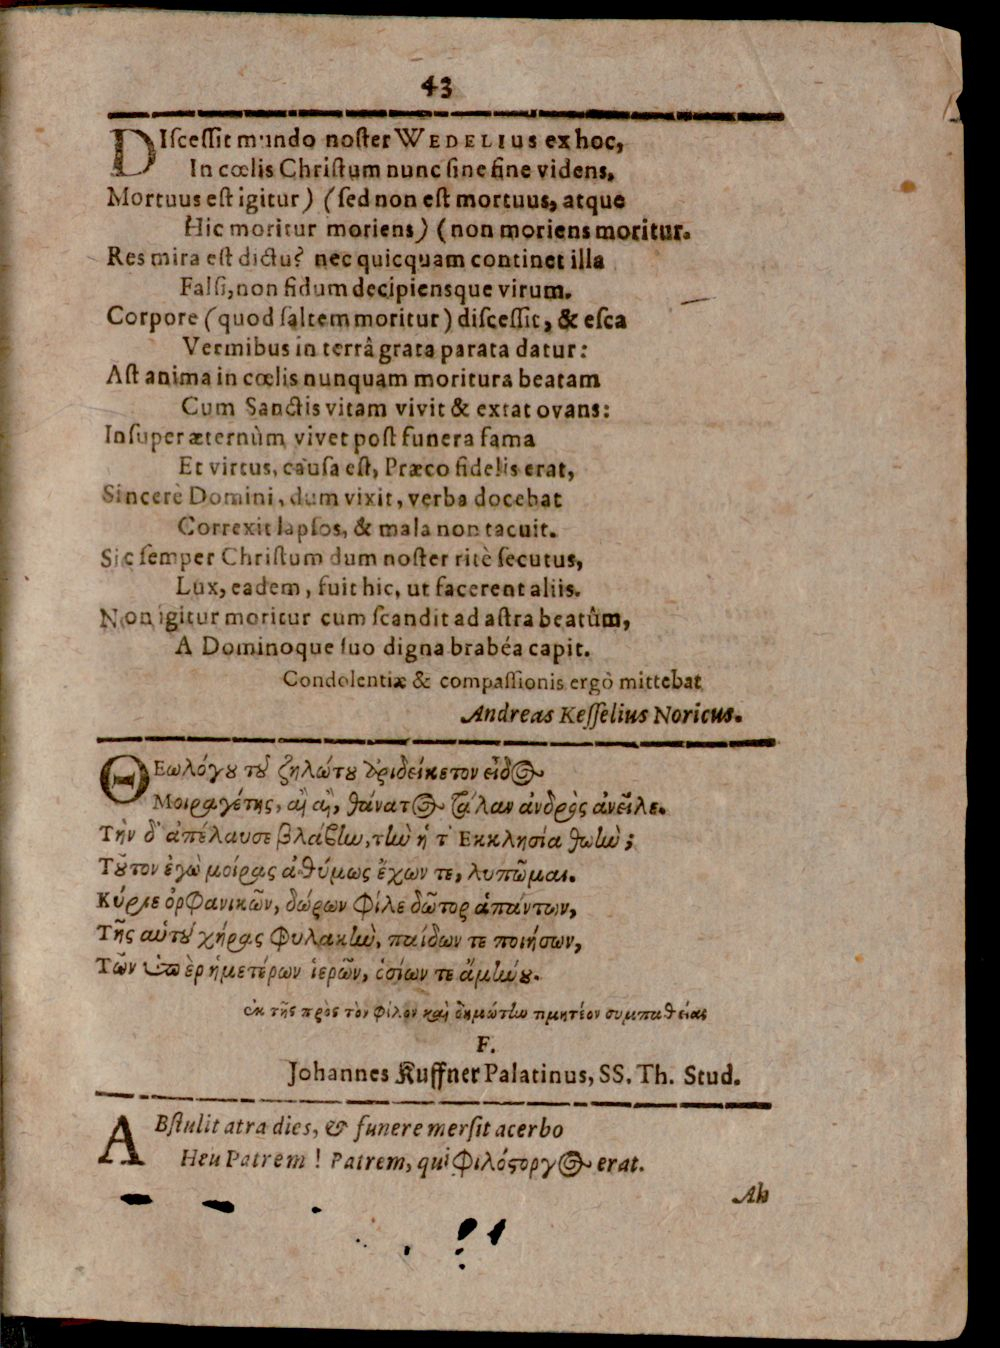 43
DIſceſſit mundo noſter WEDELIUS ex hoc,
In cœlis Chriſtum nunc ſine fine videns,
Mortuus eſt igitur) (ſed non eſt mortuus, atque
Hic moritur moriens) (non moriens moritur.
Res mira eſt dictu? nec quicquam continet illa
Falſi, non fidum decipiensque virum.
Corpore (quod ſaltem moritur) diſceſſit, & eſca
Vermibus in terrâ grata parata datur:
Aſt anima in cœlis nunquam moritura beatam
Cum Sanctis vitam vivit & extat ovans:
Inſuper æternùm vivet poſt funera fama
Et virtus, cauſa eſt, Præco fidelis erat,
Sincerè Domini, dum vixit, verba docebat
Correxit lapſos, & mala non tacuit.
Sic ſemper Chriſtum dum noſter ritè ſecutus,
Lux, eadem, fuit hic, ut facerent aliis.
Non igitur moritur cum ſcandit ad aſtra beatûm,
A Dominoque ſuo digna brabéa capit.
Condolentiæ & compaſſionis ergò mittebat
Andreas Keſſelius Noricus.
ΘΕωλόγου τοῦ ζηλώτου ἀριδείκετον εἶδος
Μοιραγέτης, αἲ αἲ, θάνατος τάλαν ἀνδρὸς ἀνεῖλε.
Τὴν δ' ἀπέλαυσε βλάβην, τὴν ἡ τ' Εκκλησία θωὴν;
Τοῦτον ἐγὼ μοίρας ἀθύμως ἔχων τε, λυπῶμαι.
Κύριε ὀρφανικῶν, δώρων φίλε δῶτορ ἁπάντων,
Τῆς αὐτοῦ χήρας φυλακὴν, παίδων τε ποιήσων,
Τῶν ὑπὲρ ἡμετέρων ἱερῶν, ὁσίων τε ἀμύνου.
ἐκ τῆς πρὸς τὸν φίλον καὶ δημώτην τιμητέον συμπαθείας
F.
Johannes Kuffner Palatinus, SS. Th. Stud.
ABſtulit atra dies, & funere merſit acerbo
Heu Patrem! Patrem, qui Φιλόςοργος erat.
Ah